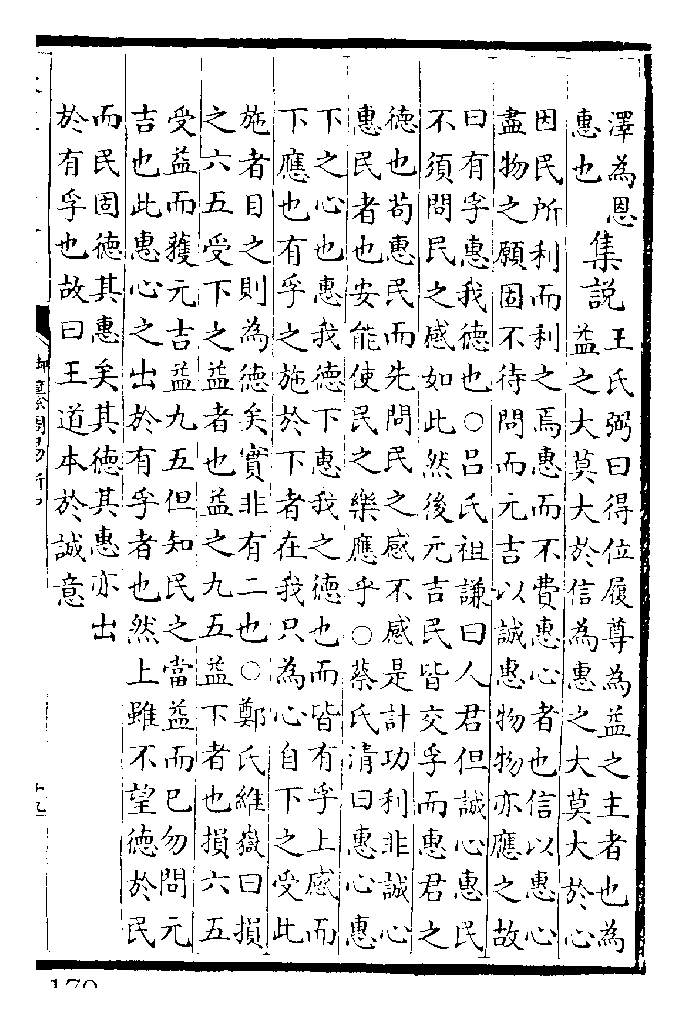 澤為恩
惠也
集說
王氏弼曰得位履尊為益之主者也為
益之大莫大於信為惠之大莫大於心
因民所利而利之焉惠而不費惠心者也信以惠心
盡物之願固不待問而元吉以誠惠物物亦應之故
曰有孚惠我德也○呂氏祖謙曰人君但誠心惠民
不須問民之感如此然後元吉民皆交孚而惠君之
德也苟惠民而先問民之感不感是計功利非誠心
惠民者也安能使民之樂應乎○蔡氏清曰惠心惠
下之心也惠我德下惠我之德也而皆有孚上感而
下應也有孚之施於下者在我只為心自下之受此
施者目之則為德矣實非有二也○鄭氏維嶽曰損
之六五受下之益者也益之九五益下者也損六五
受益而獲元吉益九五但知民之當益而已勿問元
吉也此惠心之出於有孚者也然上雖不望德於民
而民固德其惠矣其德其惠亦出
於有孚也故曰王道本於誠意